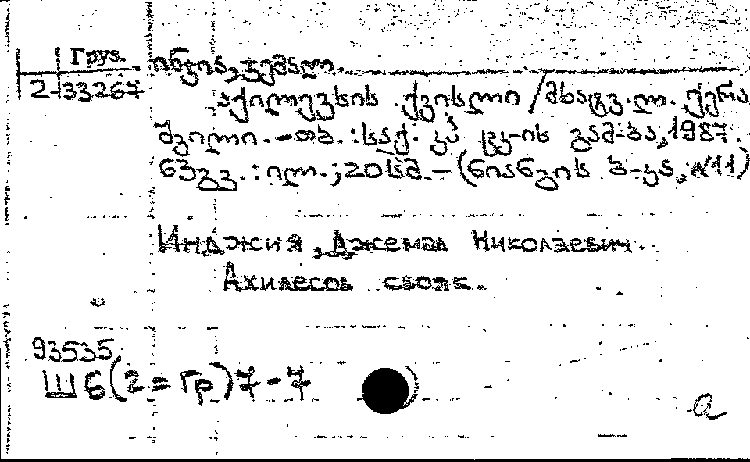 Груз.
2-33267
ინჯია, ჯემალ.
აქილევსის ქვისლი /მხატვ. ლ. ქერა
შვილი. - თბ. : საქ. კპ ცკ-ის გამ-ბა, 1987.
63გვ. : ილ. ; 20სმ. - (ნიანგის ბ-კა, №11)
Инджия, Джемал Николаевич.
Ахилесов свояк.
93535
Ш6(2=Гр)7-7
a